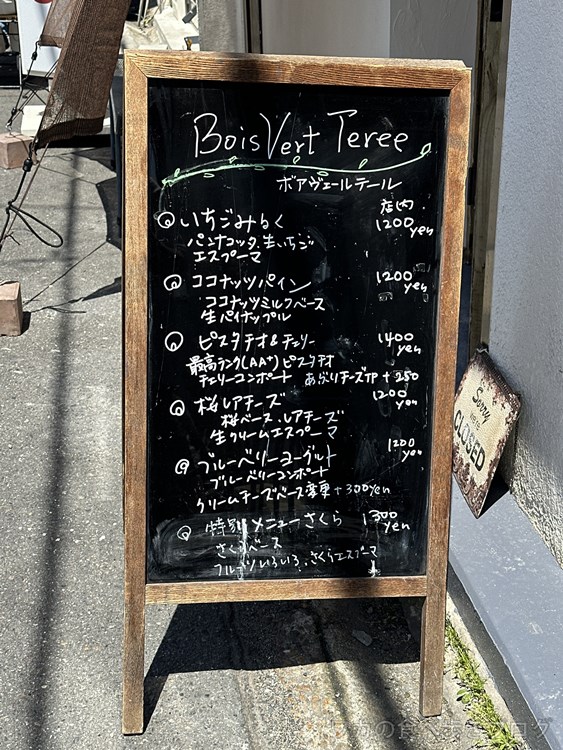 Bois Vert Teree
ボアヴェールテール
店内
いちごみるく 1200 yen
パンナコッタ、生いちご
エスプーマ
ココナッツパイン 1200 yen
ココナッツミルクベース
生パイナップル
ピスタチオ&チェリー 1400 yen
最高ランク(AA+)ピスタチオ
チェリーコンポート チーズTP+250
桜レアチーズ 1200 yen
桜ベース、レアチーズ
生クリームエスプーマ
ブルーベリーヨーグルト 1200 yen
ブルーベリーコンポート
クリームチーズベース変更+300yen
特別メニューさくら 1300 yen
さくらベース
フルーツいろいろ、さくらエスプーマ
Sorry
WE'RE
CLOSED
の食べ ブログ